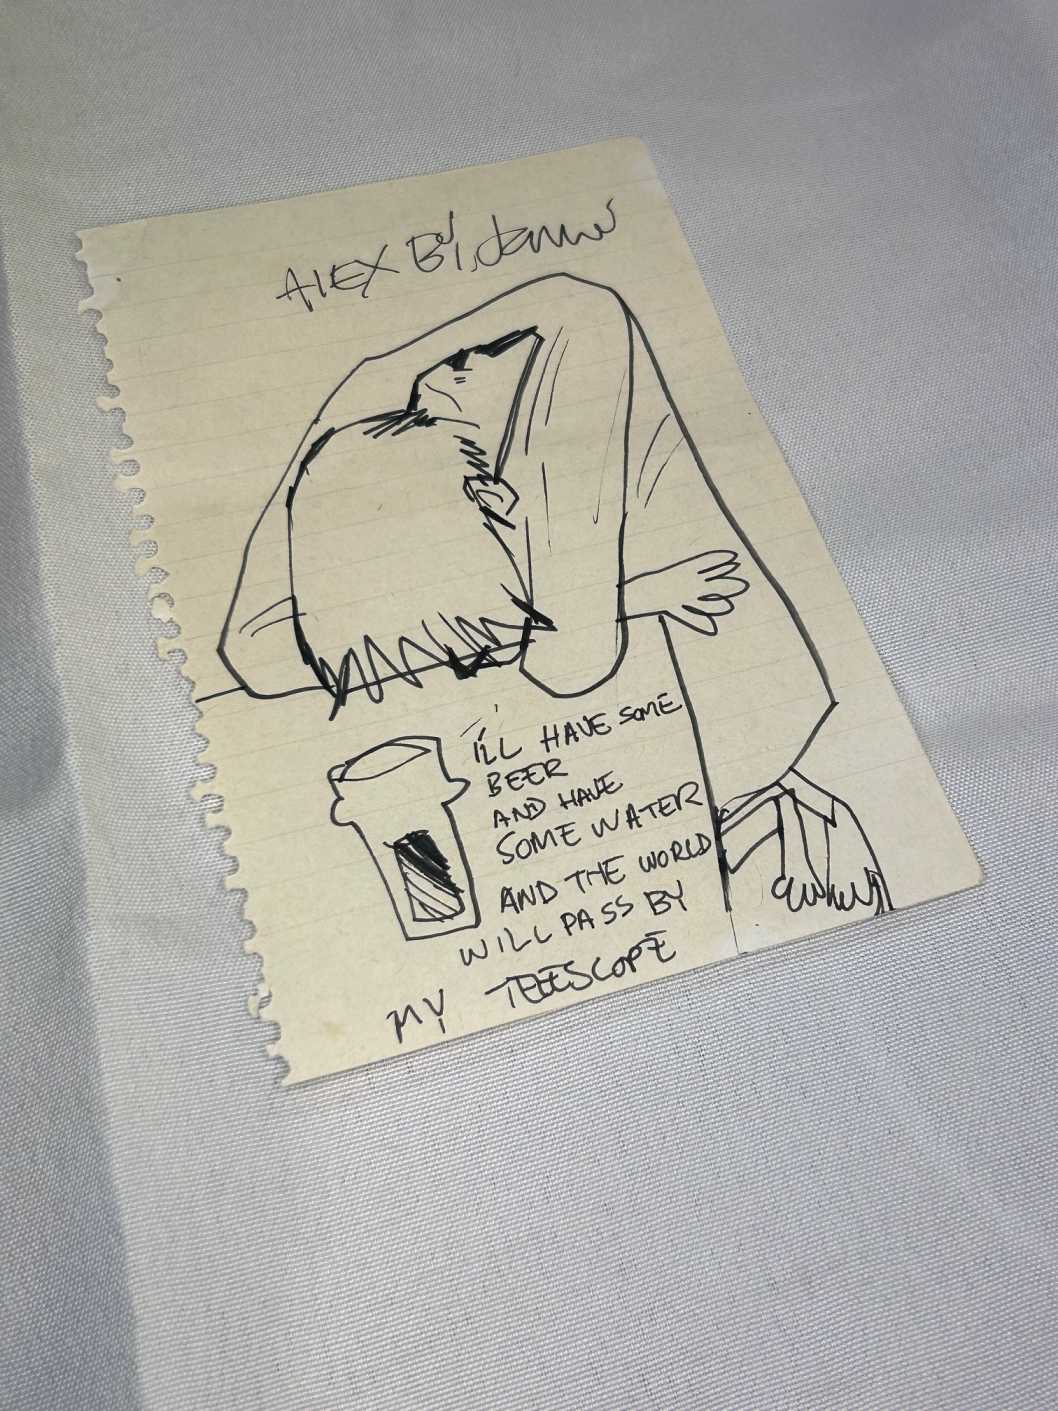 ALEX BY
I'LL HAVE SOME
BEER
AND HAVE
SOME WATER
AND THE WORLD
WILL PASS BY
MY TELESCOPE